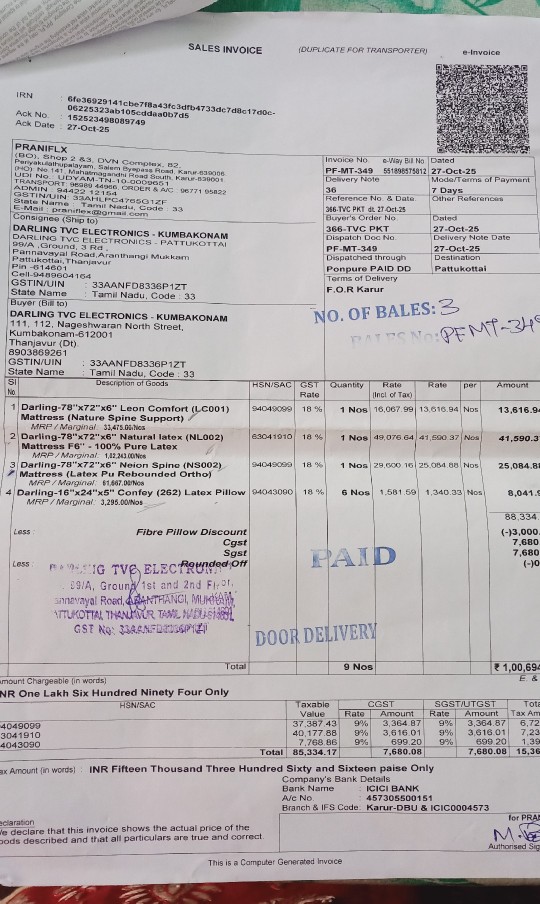 SALES INVOICE
(DUPLICATE FOR TRANSPORTER)
e-Invoice
IRN : 6fe36929141cbe7f8a43fc3dfb4733dc7d8c17d0c-
06225323ab105cddaa0b7d5
Ack No. : 152523498089749
Ack Date : 27-Oct-25
PRANIFLX
(BO), Shop 2 &3, DVN Complex, 82,
Periyakulathupalayam, Salem Byepass Road, Karur-639006
(HO): No.141, Mahatmagandhi Road South, Karur-639001
UDI No.: UDYAM-TN-10-0009651
TRANSPORT 96989 44966, ORDER & A/C 96771 95822
ADMIN 94422 12154
GSTIN/UIN: 33AHLPC4765G1ZF
State Name : Tamil Nadu, Code : 33
E-Mail : praniflex@gmail.com
Invoice No. e-Way Bill No. Dated
PF-MT-349 551898575812 27-Oct-25
Delivery Note Mode/Terms of Payment
36 7 Days
Reference No. & Date. Other References
366-TVC PKT dt. 27-Oct-25
Buyer's Order No. Dated
366-TVC PKT 27-Oct-25
Dispatch Doc No. Delivery Note Date
PF-MT-349 27-Oct-25
Dispatched through Destination
Ponpure PAID DD Pattukottai
Terms of Delivery
F.O.R Karur
Consignee (Ship to)
DARLING TVC ELECTRONICS - KUMBAKONAM
DARLING TVC ELECTRONICS - PATTUKOTTAI
99/A ,Ground, 3 Rd ,
Pannavayal Road,Aranthangi Mukkam
Pattukottai,Thanjavur
Pin -614601
Cell-9489604164
GSTIN/UIN : 33AANFD8336P1ZT
State Name : Tamil Nadu, Code : 33
Buyer (Bill to)
DARLING TVC ELECTRONICS - KUMBAKONAM
111, 112, Nageshwaran North Street,
Kumbakonam-612001
Thanjavur (Dt).
8903869261
GSTIN/UIN : 33AANFD8336P1ZT
State Name : Tamil Nadu, Code : 33
NO. OF BALES: 3
BALES No: PFMT-349
Sl No. Description of Goods HSN/SAC GST Rate Quantity Rate (Incl. of Tax) Rate per Amount
1 Darling-78"x72"x6" Leon Comfort (LC001) 94049099 18 % 1 Nos 16,067.99 13,616.94 Nos 13,616.9
Mattress (Nature Spine Support)
MRP / Marginal: 33,475.00/Nos
2 Darling-78"x72"x6" Natural latex (NL002) 63041910 18 % 1 Nos 49,076.64 41,590.37 Nos 41,590.3
Mattress F6" - 100% Pure Latex
MRP / Marginal: 1,02,243.00/Nos
3 Darling-78"x72"x6" Neion Spine (NS002) 94049099 18 % 1 Nos 29,600.16 25,084.88 Nos 25,084.8
Mattress (Latex Pu Rebounded Ortho)
MRP / Marginal: 61,667.00/Nos
4 Darling-16"x24"x5" Confey (262) Latex Pillow 94043090 18 % 6 Nos 1,581.59 1,340.33 Nos 8,041.
MRP / Marginal: 3,295.00/Nos
88,334.
Less : Fibre Pillow Discount (-)3,000.
Cgst 7,680.
Sgst 7,680
Less : Rounded Off (-)0
PAID
ELECTRON
99/A, Ground 1st and 2nd
Road, ARANTHANGI, MUKKAM,
THANJAVUR, TAMIL NADU
GST No:
DOOR DELIVERY
Total 9 Nos ₹ 1,00,694
E &
mount Chargeable (in words)
NR One Lakh Six Hundred Ninety Four Only
HSN/SAC Taxable Value CGST Rate Amount SGST/UTGST Rate Amount Tota Tax Am
4049099 37,387.43 9% 3,364.87 9% 3,364.87 6,72
3041910 40,177.88 9% 3,616.01 9% 3,616.01 7,23
4043090 7,768.86 9% 699.20 9% 699.20 1,39
Total 85,334.17 7,680.08 7,680.08 15,36
ax Amount (in words) : INR Fifteen Thousand Three Hundred Sixty and Sixteen paise Only
Company's Bank Details
Bank Name : ICICI BANK
A/c No. : 457305500151
Branch & IFS Code: Karur-DBU & ICIC0004573
eclaration
e declare that this invoice shows the actual price of the
oods described and that all particulars are true and correct.
for PRA
Authorised Sig
This is a Computer Generated Invoice